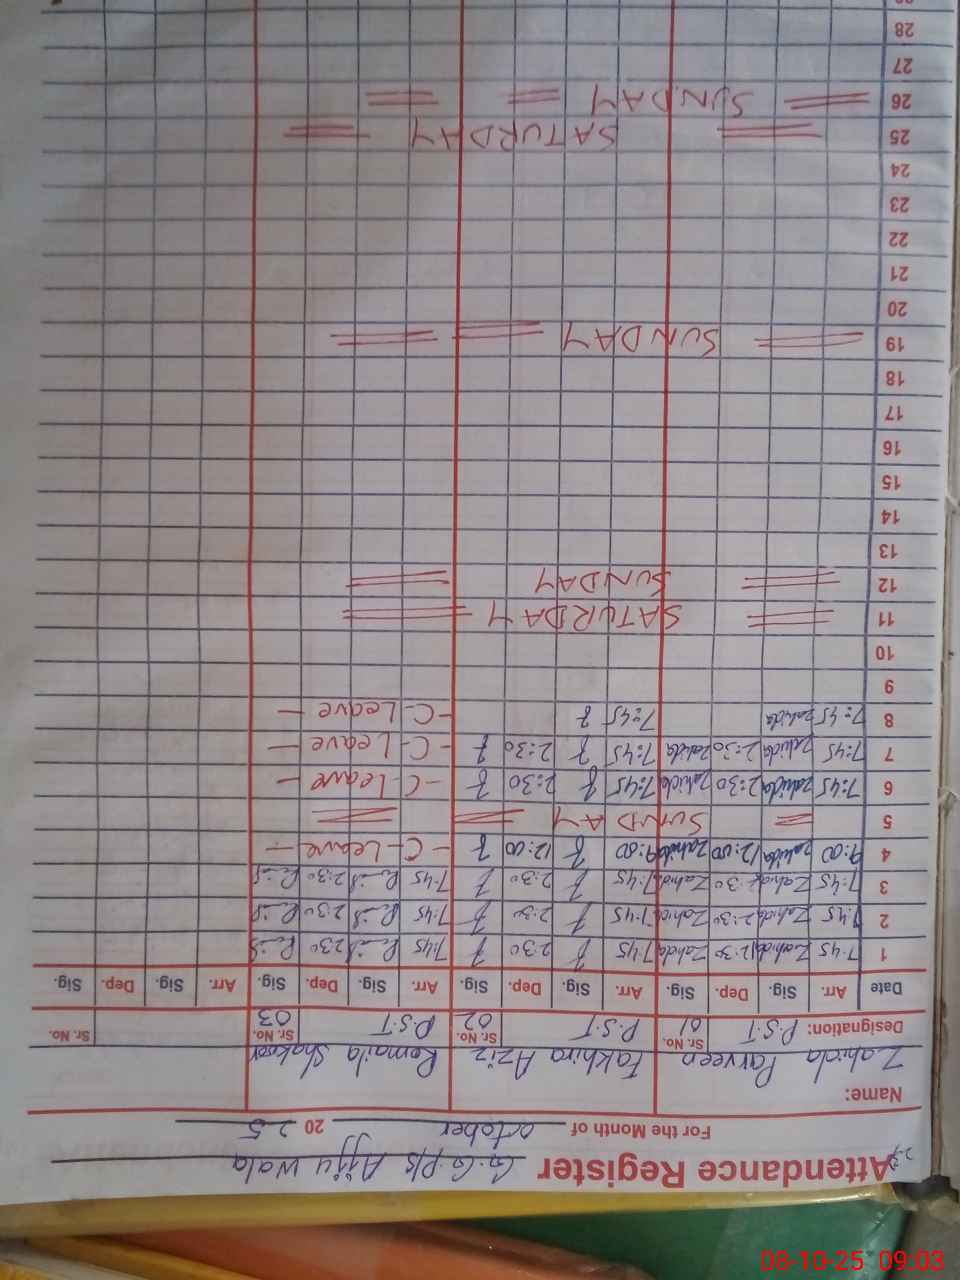 Attendance Register G.G.P/s Ajju Wala
For the Month of October 2025
Name: Zahida Parveen Fakhira Aziz Romaila Shakoor
Designation: P.S.T Sr. No. 01 P.S.T Sr. No. 02 P.S.T Sr. No. 03 Sr. No.
Date Arr. Sig. Dep. Sig. Arr. Sig. Dep. Sig. Arr. Sig. Dep. Sig. Arr. Sig. Dep. Sig.
1 7:45 Zahida 12:30 Zahida 7:45 2:30 7:45 2:30
2 7:45 Zahida 2:30 Zahida 7:45 2:30 7:45 2:30
3 7:45 Zahida 2:30 Zahida 7:45 2:30 7:45 2:30
4 9:00 zahida 12:00 zahida 9:00 12:00 - C-Leave -
5 SUNDAY
6 7:45 zahida 2:30 zahida 7:45 2:30 - C-Leave -
7 7:45 zahida 2:30 zahida 7:45 2:30 - C-Leave -
8 7:45 zahida 7:45 - C-Leave -
9
10
11 SATURDAY
12 SUNDAY
13
14
15
16
17
18
19 SUNDAY
20
21
22
23
24
25 SATURDAY
26 SUNDAY
27
28
08-10-25 09:03